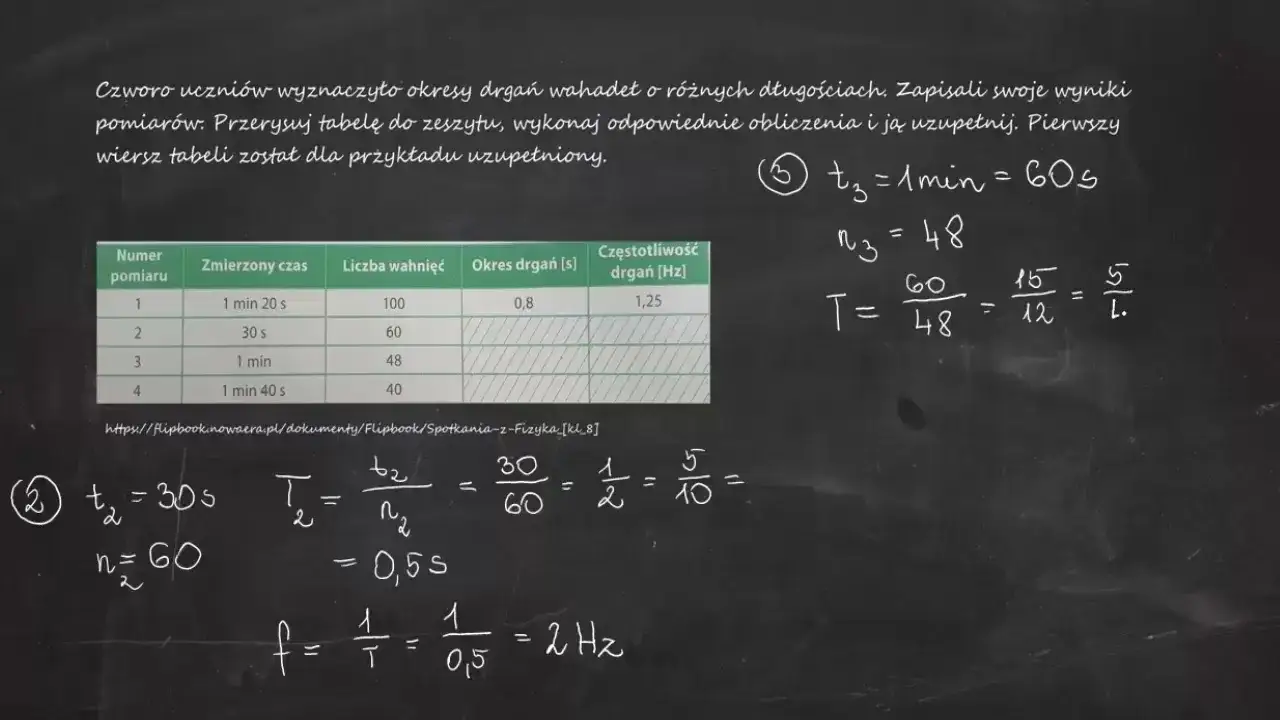 Czworo uczniów wyznaczyło okresy drgań wahadeł o różnych długościach. Zapisali swoje wyniki
pomiarów. Przerysuj tabelę do zeszytu, wykonaj odpowiednie obliczenia i ją uzupełnij. Pierwszy
wiersz tabeli został dla przykładu uzupełniony.
Numer pomiaru | Zmierzony czas | Liczba wahnięć | Okres drgań [s] | Częstotliwość drgań [Hz]
1 | 1 min 20 s | 100 | 0,8 | 1,25
2 | 30 s | 60
3 | 1 min | 48
4 | 1 min 40 s | 40
https://flipbook.nowaera.pl/dokumenty/Flipbook/Spotkania-z-Fizyka_[kl_8]
② t₂ = 30s
n₂ = 60
T₂ = t₂/n₂ = 30/60 = 1/2 = 5/10 =
= 0,5 s
f = 1/T = 1/0,5 = 2 Hz
③ t₃ = 1min = 60s
n₃ = 48
T = 60/48 = 15/12 = 5/